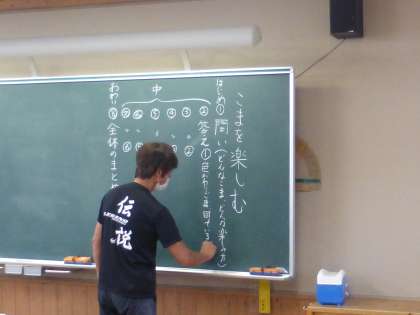 こまを楽しむ
はじめ① 問い(どんなこま、どんな楽しみ方)
中
② ③ ④ ⑤ ⑥ ⑦
答え① 色がわりごま 回っている
②
⑥
おわり⑧ 全体のまとめ
伝説